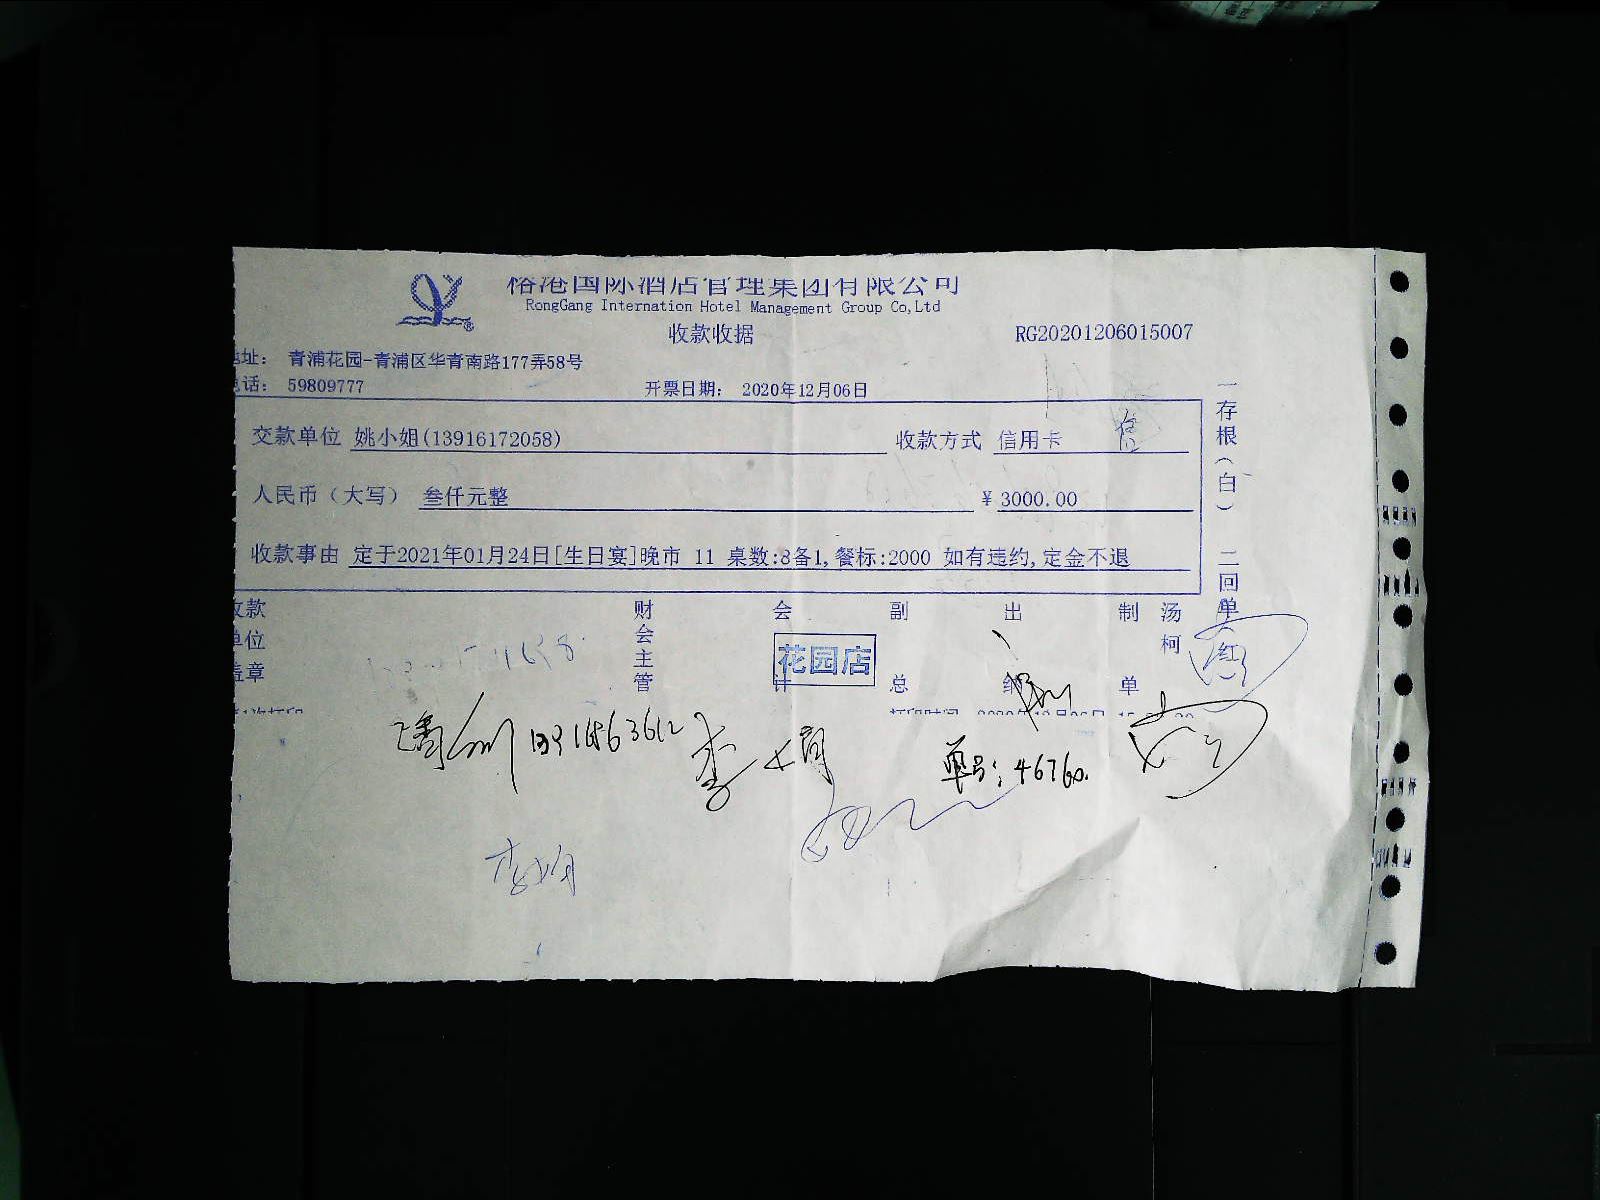 榕港国际酒店管理集团有限公司
RongGang Internation Hotel Management Group Co,Ltd
收款收据
RG20201206015007
地址： 青浦花园-青浦区华青南路177弄58号
电话： 59809777
开票日期： 2020年12月06日
交款单位 姚小姐(13916172058)
收款方式 信用卡
人民币（大写） 叁仟元整
¥ 3000.00
收款事由 定于2021年01月24日[生日宴]晚市 11 桌数:8备1,餐标:2000 如有违约,定金不退
一存根（白） 二回单（红）
收款单位盖章
财会主管
会计
副总
出纳
制单
汤柯
花园店
单号：46760.